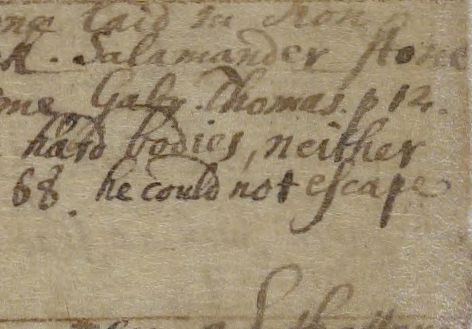 Laid in
Salamander stone
Gabr. Thomas. p 12.
hard bodies, neither
68. he could not escape